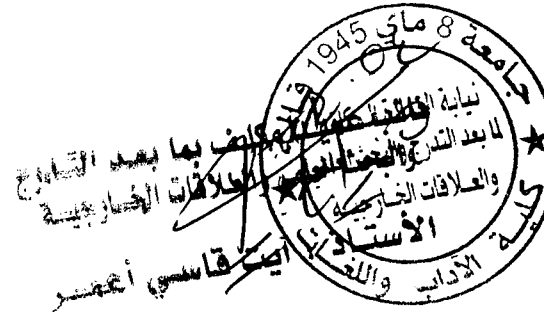 جامعة 8 ماي 1945 قالمة
كلية الآداب واللغات
نيابة
لما بعد التدرج والبحث العلمي
والعلاقات الخارجية
بما بعد التدرج
العلاقات الخارجية
الأستاذ
آيت قاسي أعمر